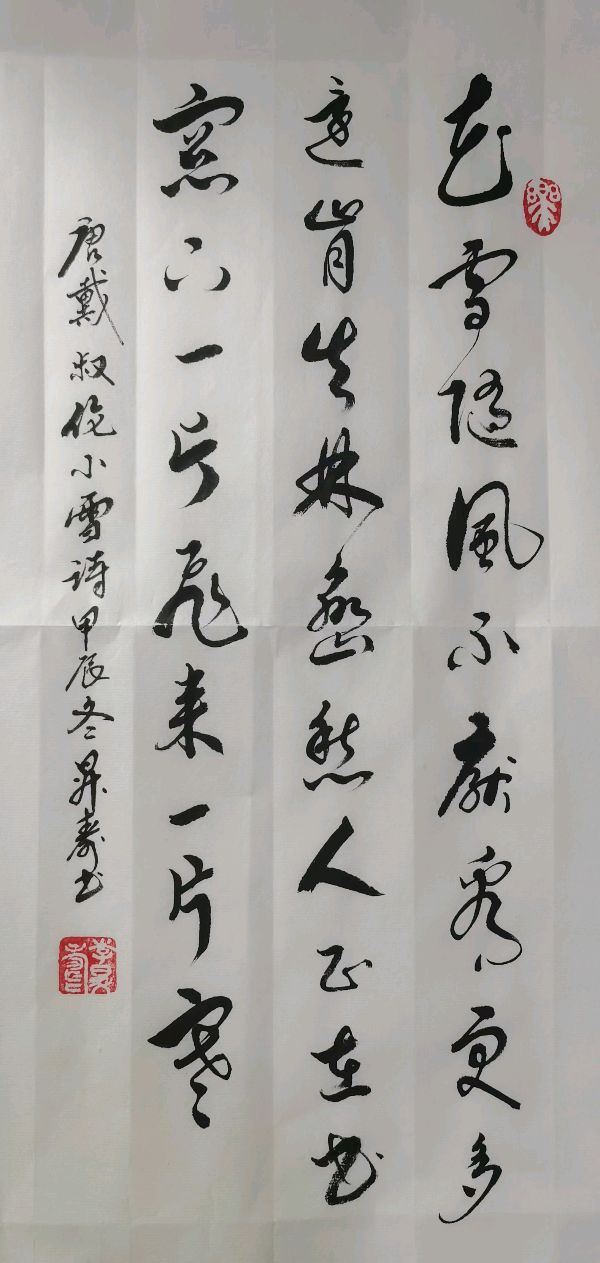 花雪随風不厭看更多
還肯失林峦愁人正在书
窓下一片飛来一片寒
唐戴叔伦小雪诗甲辰冬昇寿书